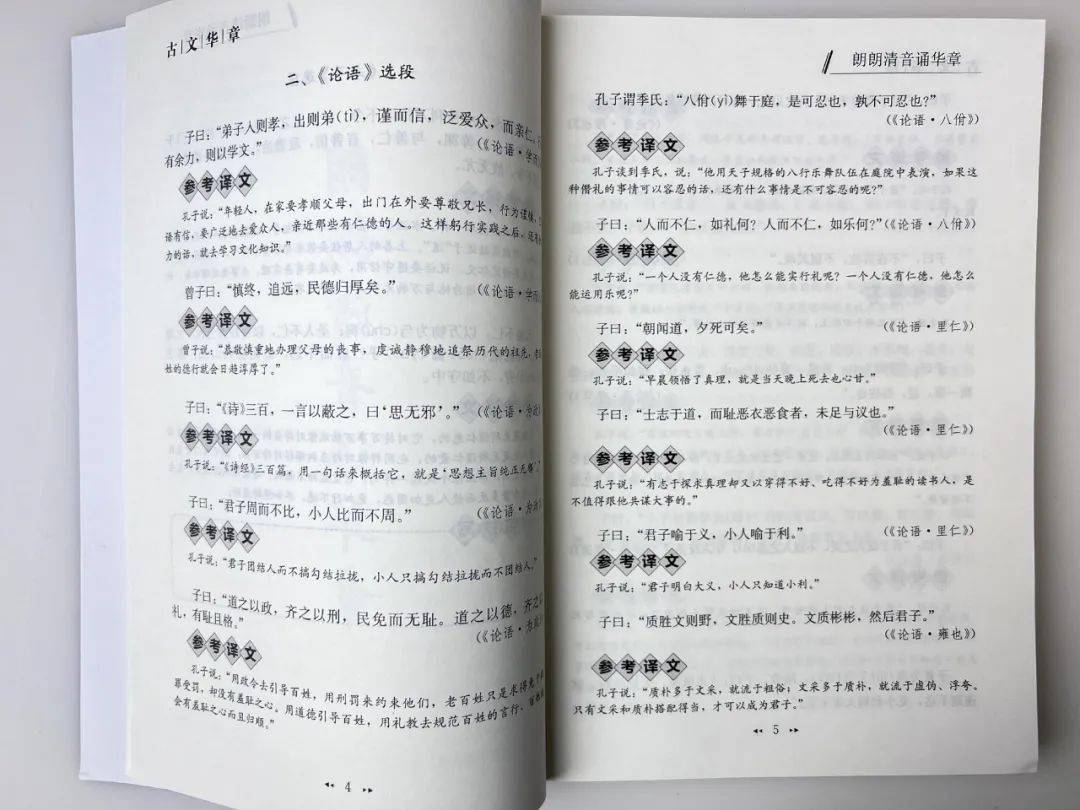 古文华章
二、《论语》选段
子曰：“弟子入则孝，出则弟(tì)，谨而信，泛爱众，而亲仁。
有余力，则以学文。”
(《论语·学而
参考译文
孔子说：“年轻人，在家要孝顺父母，出门在外要尊敬兄长，行为谨慎，
语有信，要广泛地去爱众人，亲近那些有仁德的人。这样躬行实践之后，还有
力的话，就去学习文化知识。”
曾子曰：“慎终，追远，民德归厚矣。”
(《论语·学而
参考译文
曾子说：“恭敬慎重地办理父母的丧事，虔诚静穆地追祭历代的祖先，
姓的德行就会日趋淳厚了。”
子曰：“《诗》三百，一言以蔽之，曰‘思无邪’。”
(《论语·为政
参考译文
孔子说：“《诗经》三百篇，用一句话来概括它，就是‘思想主旨纯正无邪’。”
子曰：“君子周而不比，小人比而不周。”
(《论语·为政
参考译文
孔子说：“君子团结人而不搞勾结拉拢，小人只搞勾结拉拢而不团结人。”
子曰：“道之以政，齐之以刑，民免而无耻。道之以德，齐之以
礼，有耻且格。”
(《论语·为政
参考译文
孔子说：“用政令去引导百姓，用刑罚来约束他们，老百姓只是求得免于
罪受罚，却没有羞耻之心。用道德引导百姓，用礼教去规范百姓的言行，百姓
会有羞耻之心而且归顺。”
4
朗朗清音诵华章
孔子谓季氏：“八佾(yì)舞于庭，是可忍也，孰不可忍也？”
(《论语·八佾》)
参考译文
孔子谈到季氏，说：“他用天子规格的八行乐舞队伍在庭院中表演，如果这
种僭礼的事情可以容忍的话，还有什么事情是不可容忍的呢？”
子曰：“人而不仁，如礼何？人而不仁，如乐何？”(《论语·八佾》)
参考译文
孔子说：“一个人没有仁德，他怎么能实行礼呢？一个人没有仁德，他怎么
能运用乐呢？”
子曰：“朝闻道，夕死可矣。”	(《论语·里仁》)
参考译文
孔子说：“早晨领悟了真理，就是当天晚上死去也心甘。”
子曰：“士志于道，而耻恶衣恶食者，未足与议也。”
(《论语·里仁》)
参考译文
孔子说：“有志于探求真理却又以穿得不好、吃得不好为羞耻的读书人，是
不值得跟他共谋大事的。”
子曰：“君子喻于义，小人喻于利。”	(《论语·里仁》)
参考译文
孔子说：“君子明白大义，小人只知道小利。”
子曰：“质胜文则野，文胜质则史。文质彬彬，然后君子。”
(《论语·雍也》)
参考译文
孔子说：“质朴多于文采，就流于粗俗；文采多于质朴，就流于虚伪、浮夸。
只有文采和质朴搭配得当，才可以成为君子。”
5